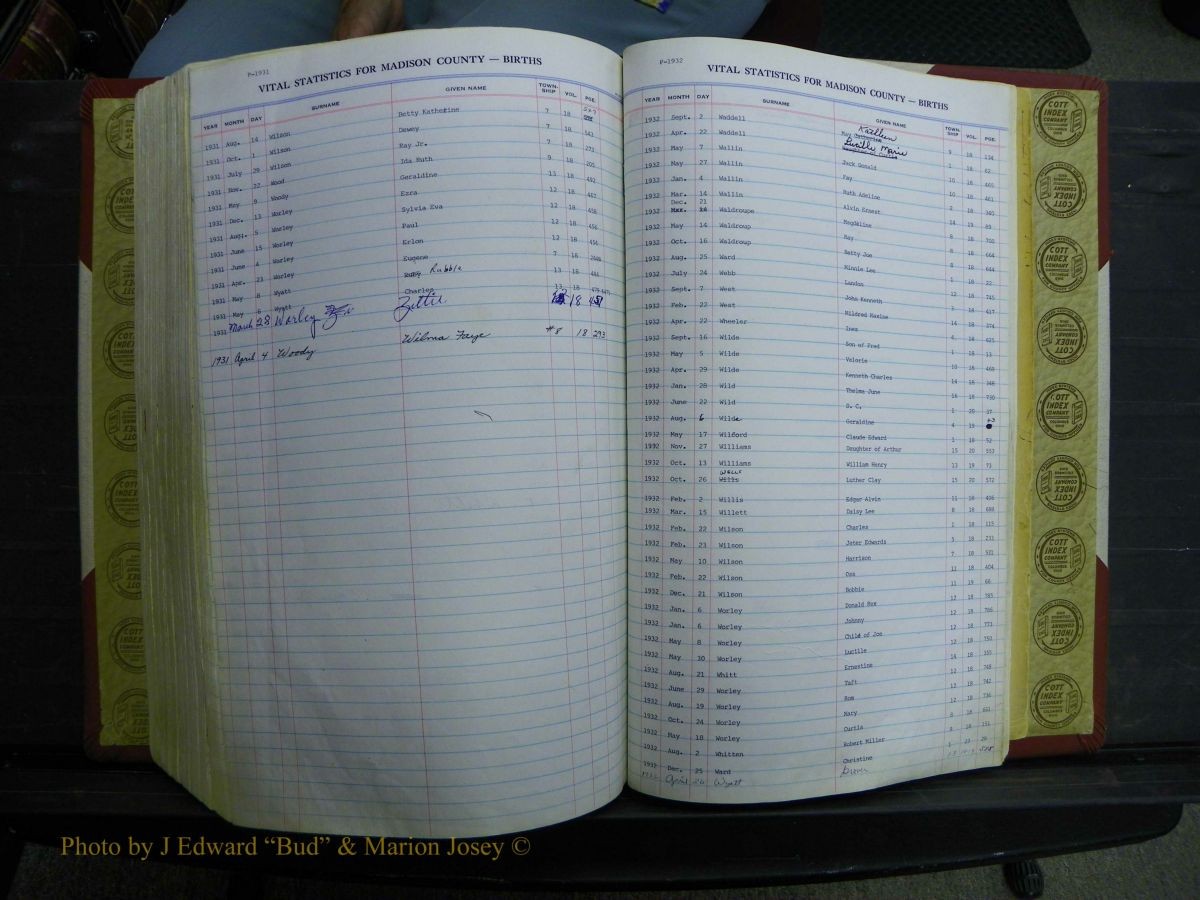 P-1931
VITAL STATISTICS FOR MADISON COUNTY — BIRTHS
YEAR MONTH DAY SURNAME GIVEN NAME TOWN-SHIP VOL. PGE.
1931 Aug. 14 Wilson Betty Katherine 7 18
1931 Oct. 1 Wilson Dewey 7 18 543
1931 July 29 Wilson Ray Jr. 7 18 271
1931 Nov. 22 Wood Ida Ruth 9 18 205
1931 May 9 Woody Geraldine 13 18 492
1931 Dec. 13 Worley Ezra 12 18 467
1931 Aug. 5 Worley Sylvia Eva 12 18 458
1931 June 15 Worley Paul 12 18 456
1931 June 4 Worley Erlon 12 18 454
1931 Apr. 23 Worley Eugene 7 18
1931 May 8 Wyatt Rubble 13 18 484
1931 May 6 Wyatt Charles 13 18 479
1931 March 28 Worley Zettie 18 451
1931 April 4 Woody Wilma Faye #8 18 273
P-1932
VITAL STATISTICS FOR MADISON COUNTY — BIRTHS
YEAR MONTH DAY SURNAME GIVEN NAME TOWN-SHIP VOL. PGE.
1932 Sept. 2 Waddell May Kathleen 9 18 134
1932 Apr. 22 Waddell Lucille Marie
1932 May 7 Wallin Jack Donald 10 18
1932 May 27 Wallin Fay 10 18 461
1932 Jan. 4 Wallin Ruth Adeline 2 18 340
1932 Mar. 14 Wallin Alvin Ernest 14 19 89
1932 Dec. 21 Waldroupe Magdeline 8 18 700
1932 May 14 Waldroup Ray 8 18 664
1932 Oct. 16 Waldroup Betty Joe 8 18 644
1932 Aug. 25 Ward Minnie Lee 1 18 22
1932 July 24 Webb Landon 12 18 745
1932 Sept. 7 West John Kenneth 18 417
1932 Feb. 22 West Mildred Maxine 14 18 374
1932 Apr. 22 Wheeler Inez 4 18 625
1932 Sept. 16 Wilde Son of Fred 1 18 13
1932 May 5 Wilde Valerie 10 18 460
1932 Apr. 29 Wilde Kenneth Charles 14 18 348
1932 Jan. 28 Wild Thelma June 18 730
1932 June 22 Wild S. C. 1 20 37
1932 Aug. 6 Wilde Geraldine 4 19
1932 May 17 Wilford Claude Edward 1 18 52
1932 Nov. 27 Williams Daughter of Arthur 15 20 553
1932 Oct. 13 Williams William Henry 13 19 73
1932 Oct. 26 Wells Luther Clay 15 20 572
1932 Feb. 2 Willis Edgar Alvin 11 18 406
1932 Mar. 15 Willett Daisy Lee 8 18 698
1932 Feb. 22 Wilson Charles 1 18 115
1932 Feb. 23 Wilson Jeter Edwards 5 18 231
1932 May 10 Wilson Harrison 7 18 531
1932 Feb. 22 Wilson Osa 11 18 404
1932 Dec. 21 Wilson Bobbie 11 19 66
1932 Jan. 6 Worley Donald Rex 12 18 785
1932 Jan. 6 Worley Johnny 12 18 786
1932 May 8 Worley Child of Joe 12 18 771
1932 May 10 Worley Lucille 12 18 750
1932 Aug. 21 Whitt Ernestine 14 18 155
1932 June 29 Worley Taft 12 18 748
1932 Aug. 19 Worley Rom 12 18 742
1932 Oct. 24 Worley Mary 12 18 736
1932 May 18 Worley Curtis 8 18 651
1932 Aug. 2 Whitten Robert Miller 8 18 151
1932 Dec. 25 Ward Christine 1 23 29
1932 April 26 Wyatt
COTT INDEX COMPANY COLUMBUS OHIO
Photo by J Edward “Bud” & Marion Josey ©